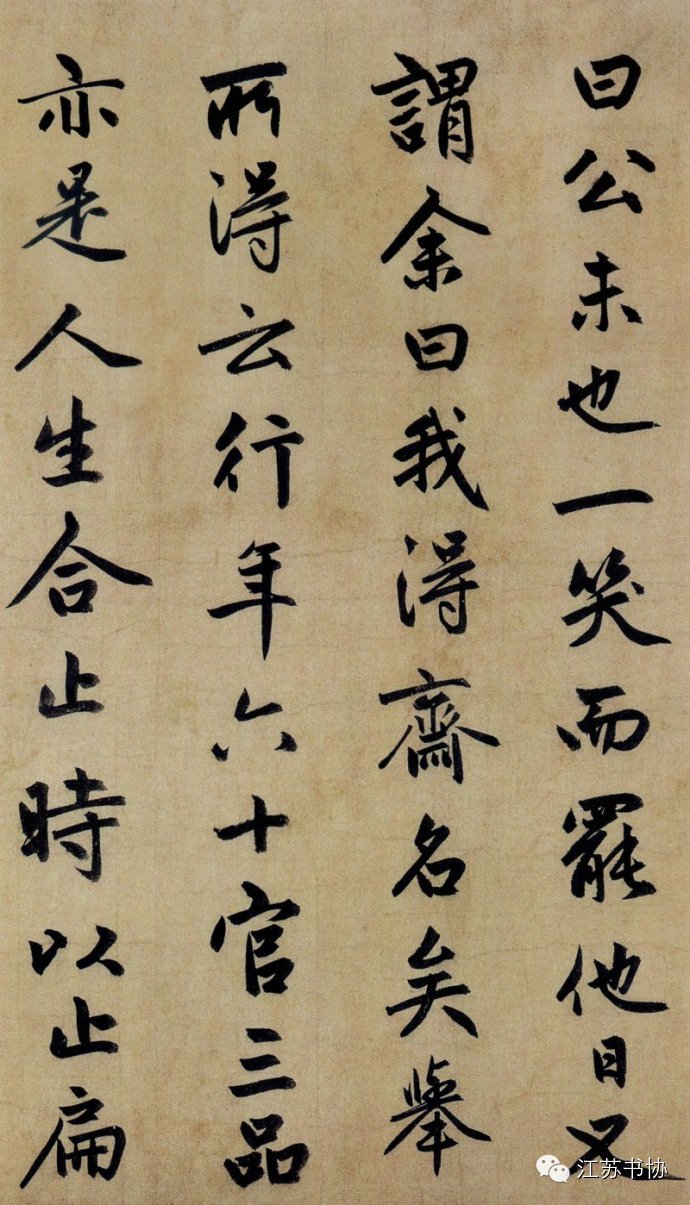 曰公未也一笑而罷他日又
謂余曰我得齋名矣舉
所得云行年六十官三品
亦是人生合止時以止扁
江苏书协